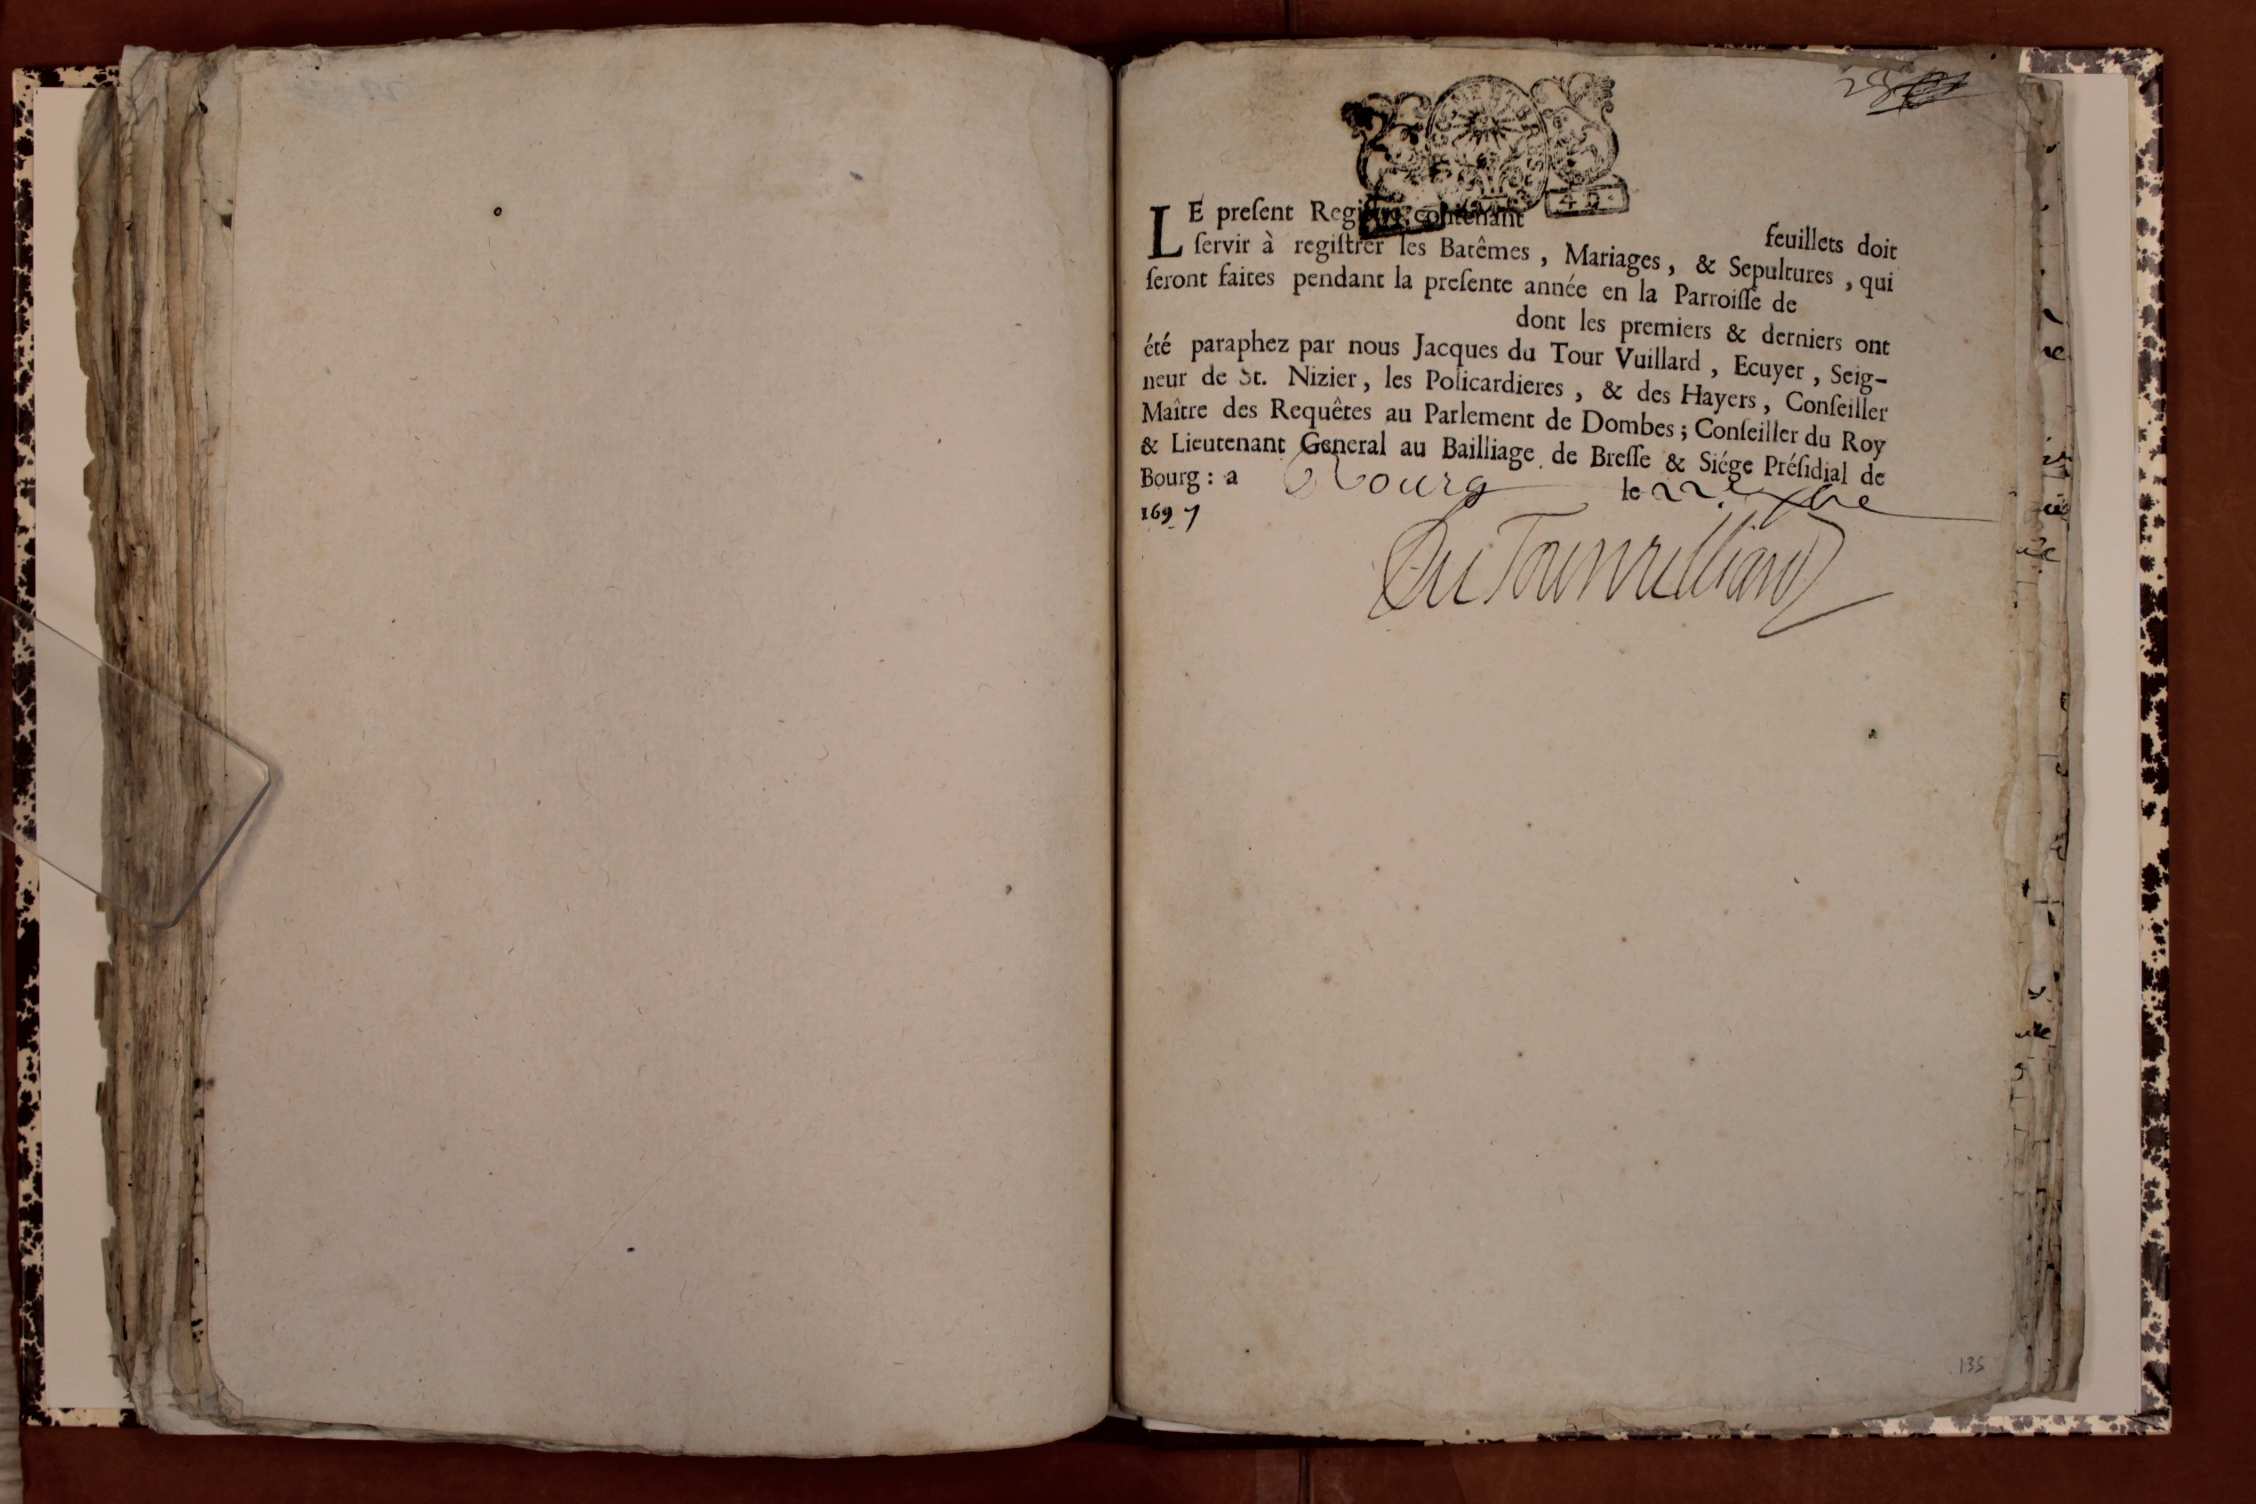 LE preſent Regiſtre contenant feuillets doit
ſervir à regiſtrer les Batêmes , Mariages , & Sepultures , qui
ſeront faites pendant la preſente année en la Parroiſſe de
dont les premiers & derniers ont
été paraphez par nous Jacques du Tour Vuillard , Ecuyer , Seig-
neur de St. Nizier , les Policardieres , & des Hayers , Conſeiller
Maître des Requêtes au Parlement de Dombes ; Conſeiller du Roy
& Lieutenant General au Bailliage de Breſſe & Siége Préſidial de
Bourg : a Bourg le 22e xbre
1697
Du Tour vuilliard
135